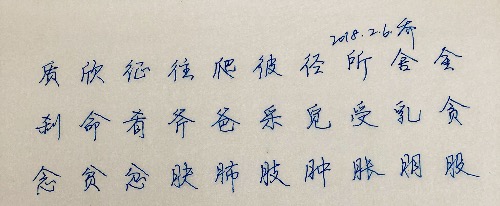 2018.2.6.乔
质 欣 征 往 爬 彼 径 所 舍 金
刹 命 肴 斧 爸 采 觅 受 乳 贪
念 贫 忿 肤 肺 肢 肿 胀 朋 股